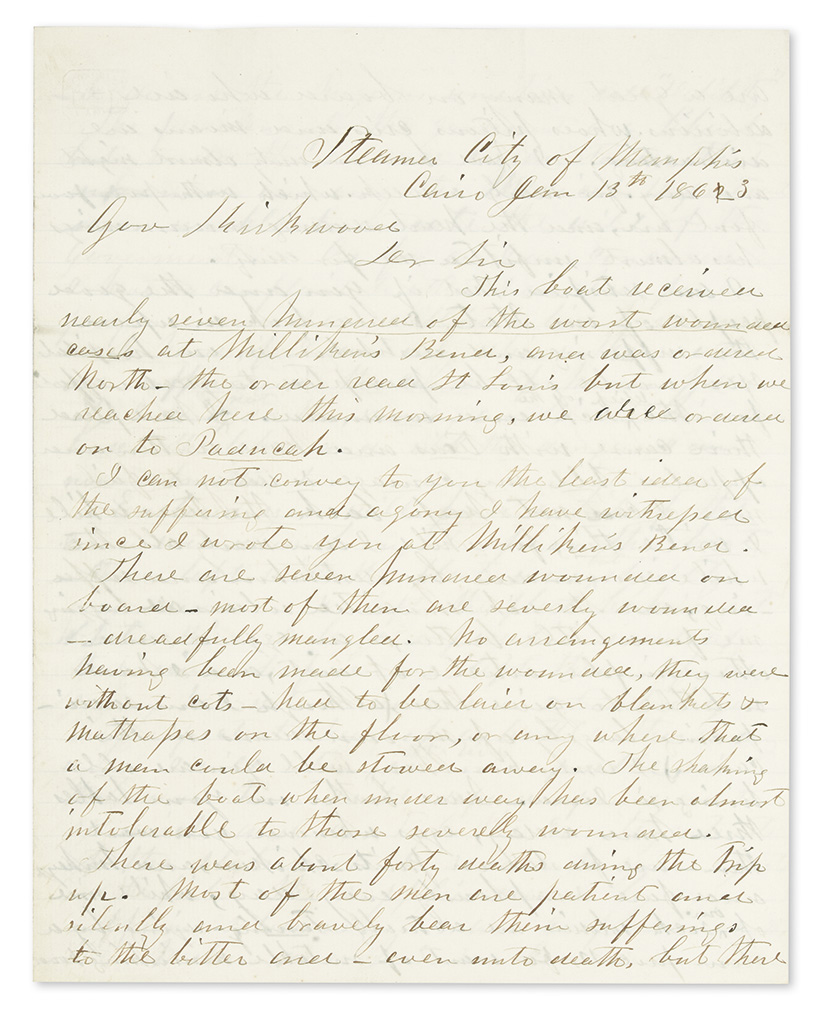 Steamer City of Memphis
Cairo Jan 13th 18623
Gov Kirkwood
Der Sir
This boat received
nearly seven hundred of the worst wounded
cases at Milliken's Bend, and was ordered
North – the order read St Louis but when we
reached here this morning, we are ordered
on to Paducah.
I can not convey to you the least idea of
the suffering and agony I have witnessed
since I wrote you at Milliken's Bend.
There are seven hundred wounded on
board – most of them are severly wounded
– dreadfully mangled. No arrangements
having been made for the wounded, they were
without cots – had to be laid on blankets &
mattrasses on the floor, or any where that
a man could be stowed away. The shaking
of the boat when under way has been almost
intolerable to those severely wounded.
There was about forty deaths during the trip
up. Most of the men are patient and
silently and bravely bear their sufferings
to the bitter end – even unto death, but there